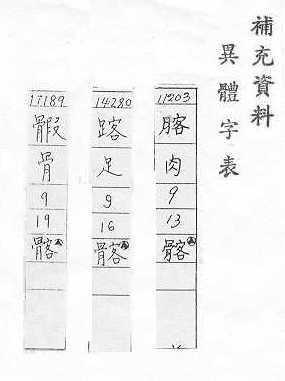 補充資料
異體字表
11203
䏩
肉
9
13
髂
14280
䠍
足
9
16
髂
17189
骰
骨
9
19
髂